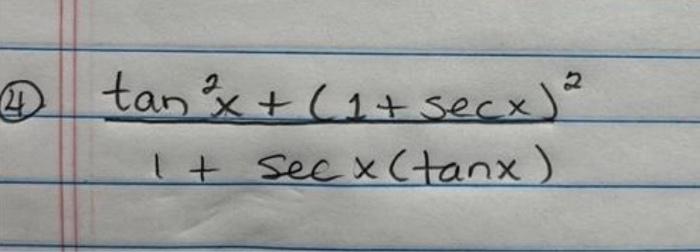 ④ tan²x + (1 + secx)²
1 + secx(tanx)